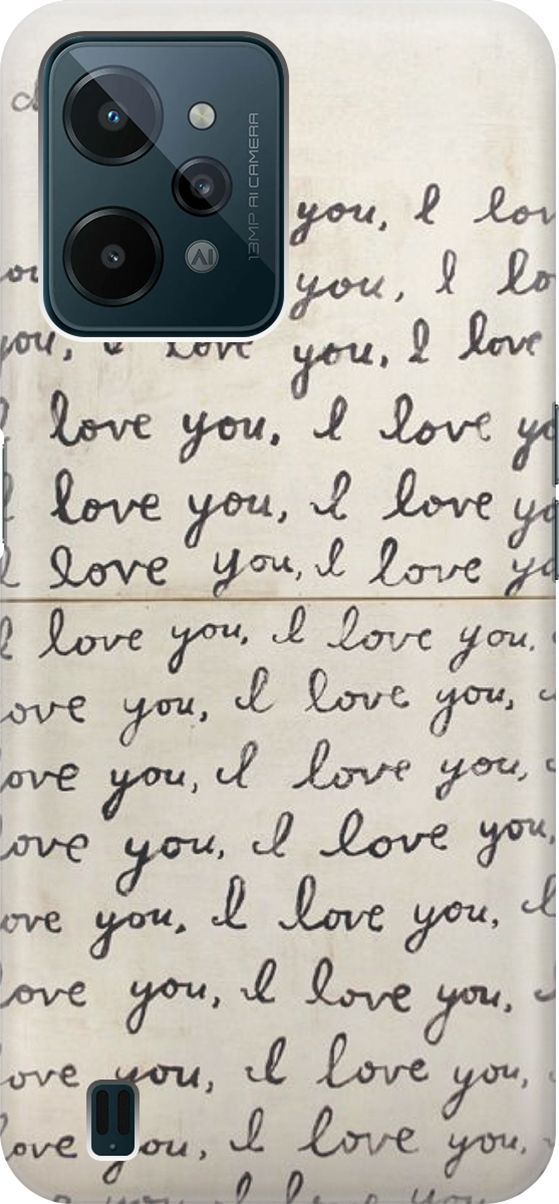 13MP AI CAMERA
AI
you, I
you, I
you, I love you, I love
love you, I love
love you, I love
I love you, I love
I love you, I love you,
you, I love you,
you, I love you,
you, I love you,
you, I love you,
you, I love you,
you, I love you,
you, I love you,